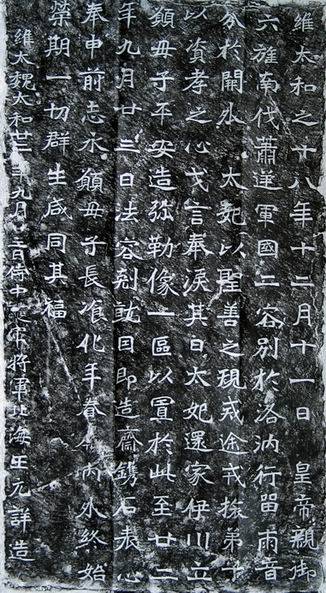 維太和之十八年十二月十一日皇帝親御
六旌南伐蕭逆軍國二容別於洛汭行留兩音
分於闕外太妃以聖善之規戒途戒旅弟子
以資孝之心戈言奉淚其日太妃還家伊川立
願母子平安造彌勒像一區以置於此至廿二
年九月廿三日法容剋就因即造齋鐫石表心
奉申前志永願母子長飡化年眷屬內外終始
榮期一切群生咸同其福
維大魏太和廿二年九月廿三日侍中護軍將軍北海王元詳造